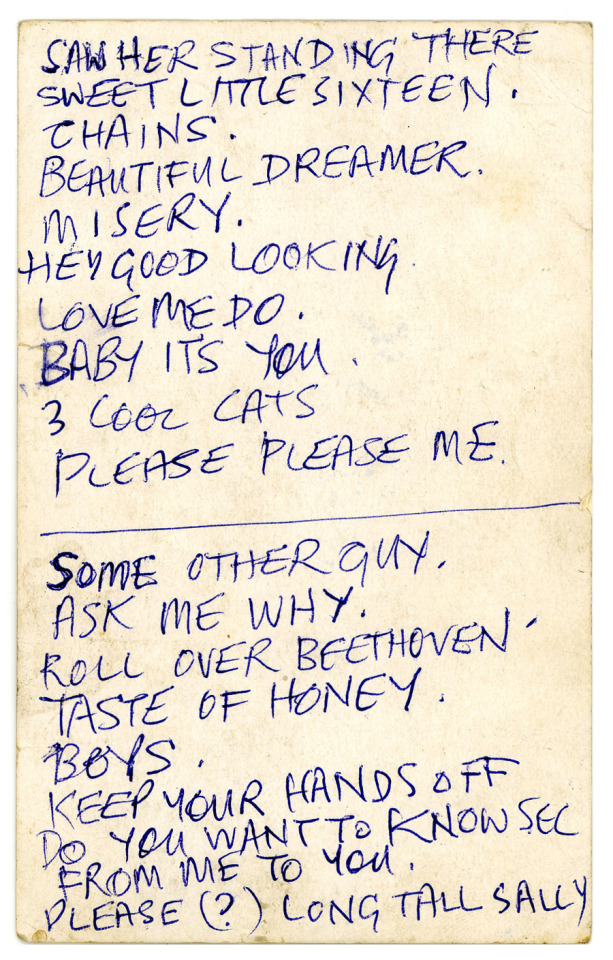 SAW HER STANDING THERE
SWEET LITTLE SIXTEEN.
CHAINS.
BEAUTIFUL DREAMER.
MISERY.
HEY GOOD LOOKING.
LOVE ME DO.
BABY ITS YOU.
3 COOL CATS
PLEASE PLEASE ME.
SOME OTHER GUY.
ASK ME WHY.
ROLL OVER BEETHOVEN
TASTE OF HONEY.
BOYS.
KEEP YOUR HANDS OFF
DO YOU WANT TO KNOW SEC
FROM ME TO YOU.
PLEASE (?) LONG TALL SALLY